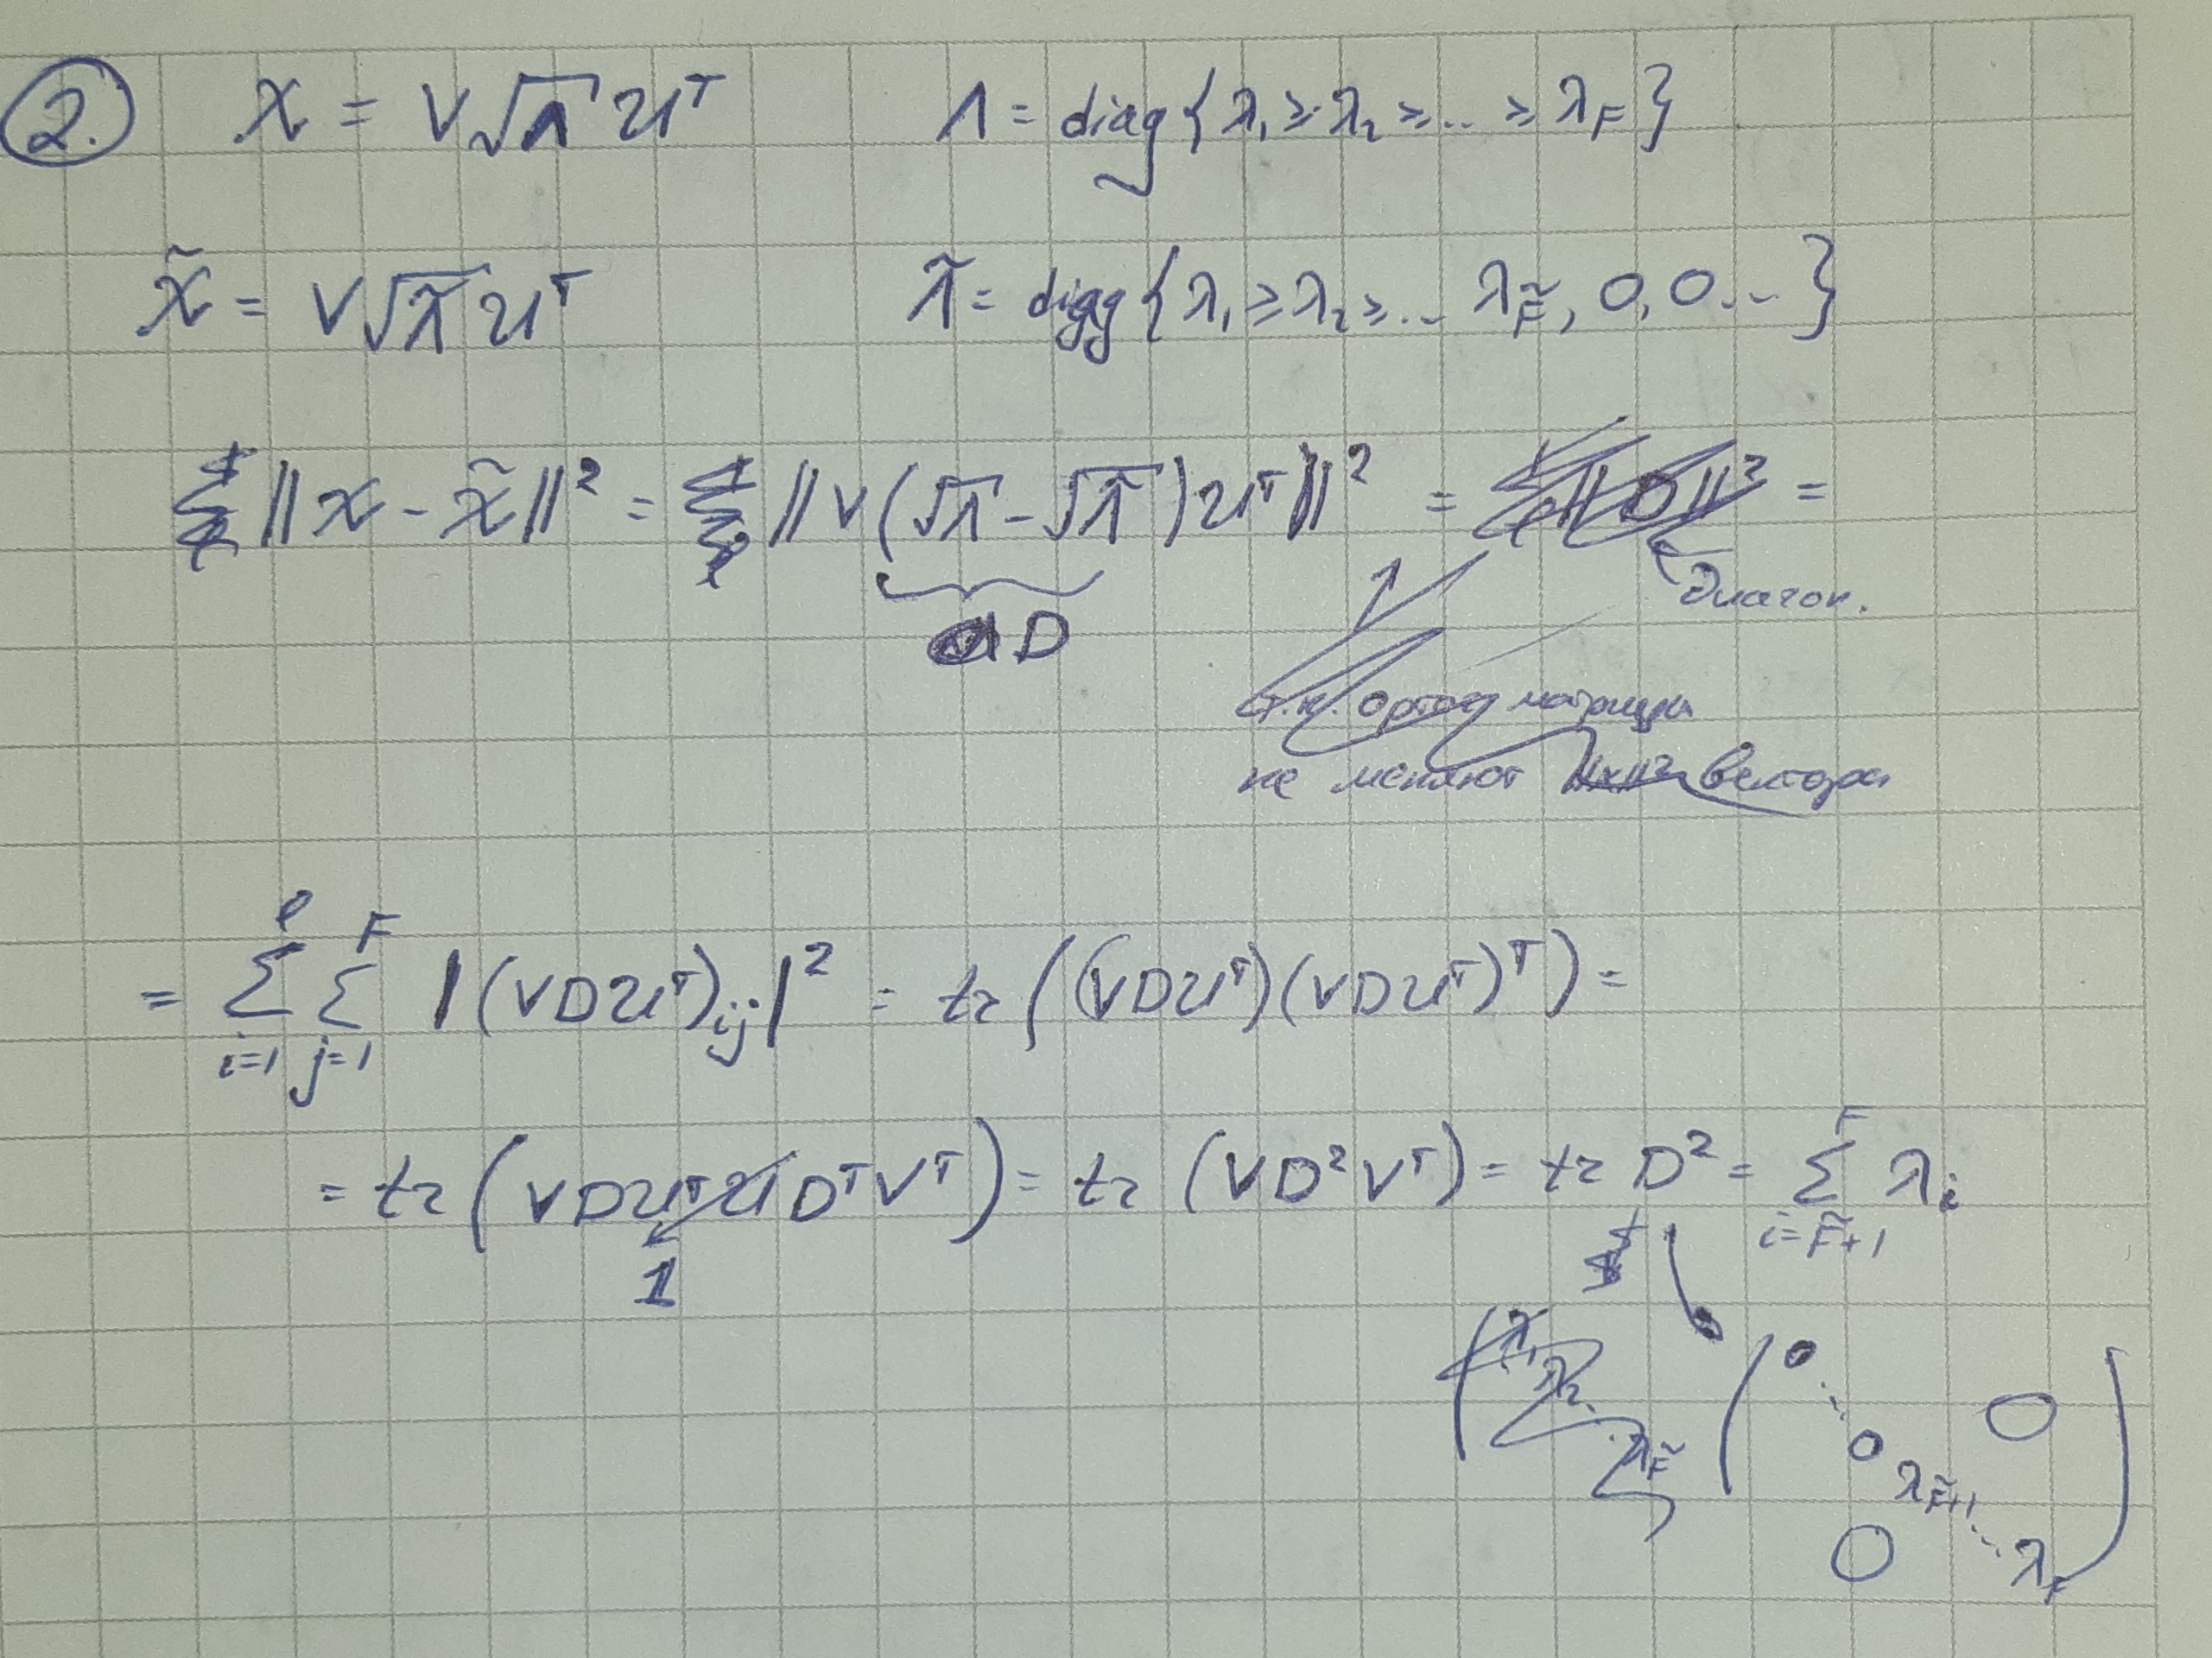 2. X = V√Λ U^T Λ = diag{λ₁ ≥ λ₂ ≥ ... ≥ λ_F}
X̃ = V√Λ̃ U^T Λ̃ = diag{λ₁ ≥ λ₂ ≥ ... λ_F̃, 0, 0...}
||X - X̃||² = ||V(√Λ - √Λ̃)U^T||² = ||D||² =
D
диагон.
т.к. ортог матрицы
не меняют ||x||² вектора
= Σ_{i=1}^{ℓ} Σ_{j=1}^{F} |(VDU^T)_{ij}|² = tr((VDU^T)(VDU^T)^T) =
= tr(VDU^T U D^T V^T) = tr(VD²V^T) = tr D² = Σ_{i=F̃+1}^{F} λ_i
1
(λ₁ λ₂ λ_F̃ (0 ⋱ 0 λ_{F̃+1} ⋱ λ_F 0 0)